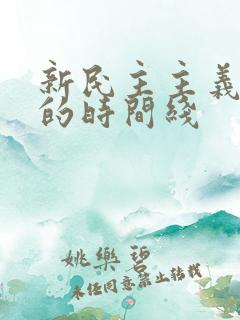 新民主主義
的時間綫
姚樂碧
未任同意禁止轉載